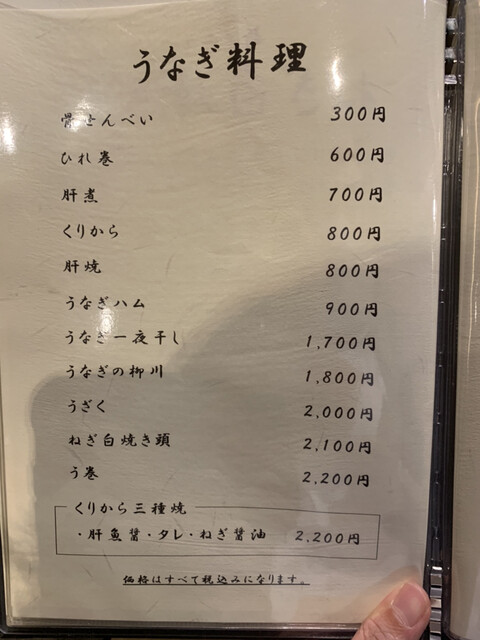 うなぎ料理
骨せんべい 300円
ひれ巻 600円
肝煮 700円
くりから 800円
肝焼 800円
うなぎハム 900円
うなぎ一夜干し 1,700円
うなぎの柳川 1,800円
うざく 2,000円
ねぎ白焼き頭 2,100円
う巻 2,200円
くりから三種焼
・肝魚醤・タレ・ねぎ醤油 2,200円
価格はすべて税込みになります。